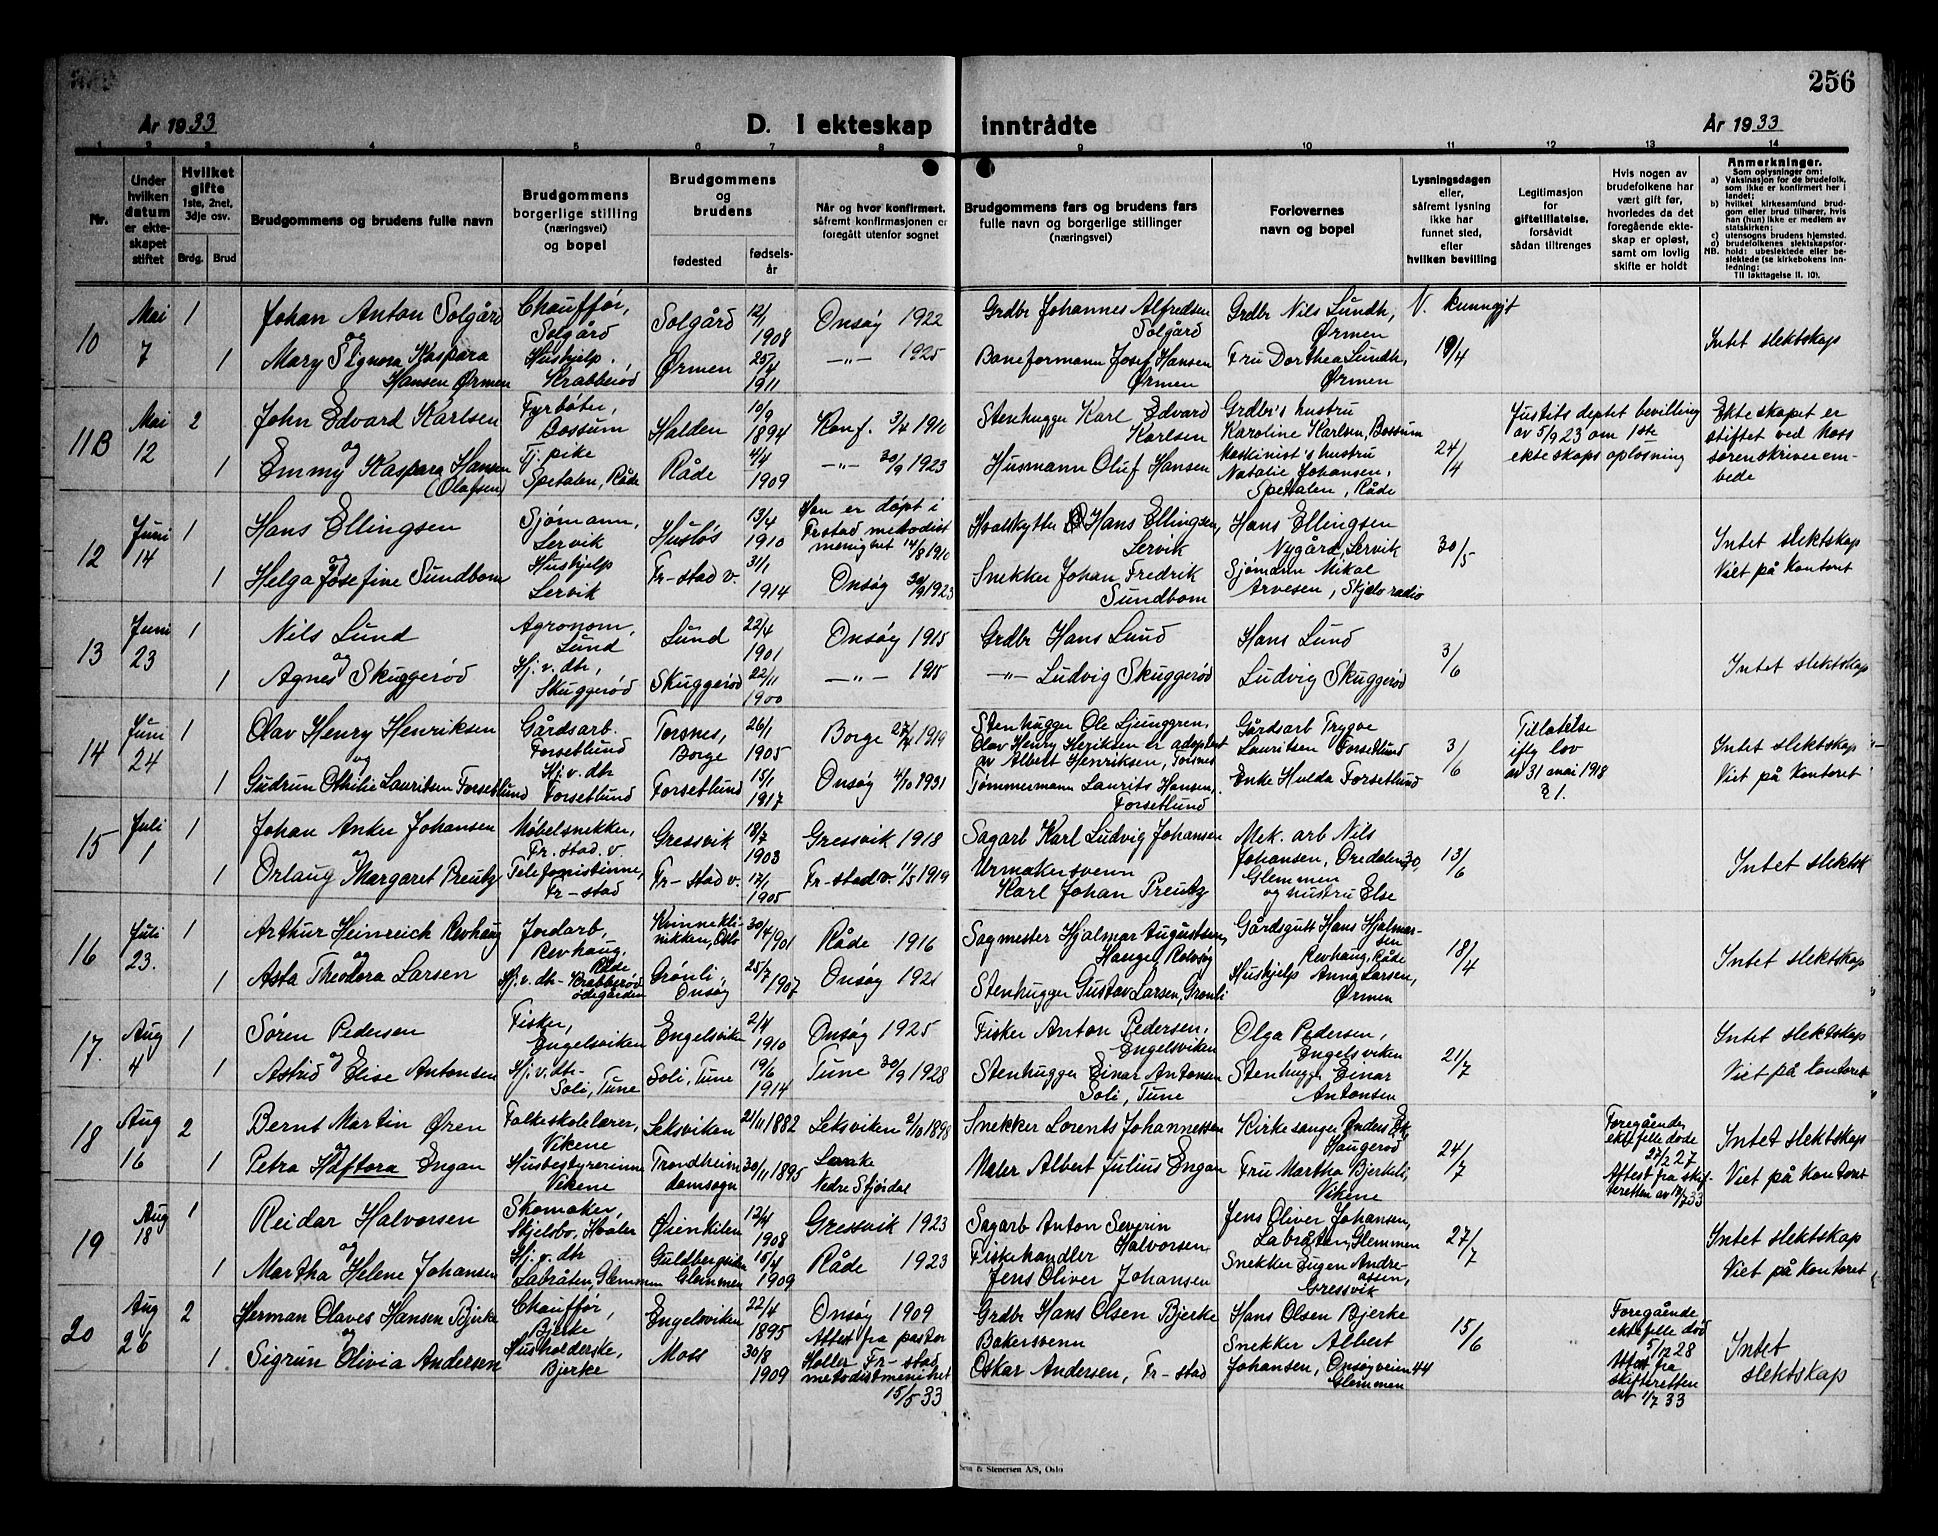 256
År 1933
D. I ekteskap inntrådte
År 1933
1 2 3 4 5 6 7 8 9 10 11 12 13 14
Nr.
Under hvilken datum er ekteskapet stiftet
Hvilket gifte 1ste, 2net, 3dje osv.
Brdg. Brud
Brudgommens og brudens fulle navn
Brudgommens borgerlige stilling (næringsvei) og bopel
Brudgommens og brudens
fødested
fødselsår
Når og hvor konfirmert, såfremt konfirmasjonen er foregått utenfor sognet
Brudgommens fars og brudens fars fulle navn og borgerlige stillinger (næringsvei)
Forlovernes navn og bopel
Lysningsdagen eller, såfremt lysning ikke har funnet sted, efter hvilken bevilling
Legitimasjon for giftetillatelse, forsåvidt sådan tiltrenges
Hvis nogen av brudefolkene har vært gift før, hvorledes da det foregående ekteskap er opløst, samt om lovlig skifte er holdt
Anmerkninger.
Som oplysninger om:
a) Vaksinasjon for de brudefolk, som ikke er konfirmert her i landet;
b) hvilket kirkesamfund brudgom eller brud tilhører, hvis han (hun) ikke er medlem av statskirken;
c) utensogns brudens hjemsted.
d) brudefolkenes slektskapsforhold: ubeslektede eller beslektede (se kirkebokens innledning:
NB.
Til iakttagelse II. 10).
10 Mai 7 1 Johan Anton Solgård Chauffør, Solgård Solgård 12/1 1908 Onsøy 1922 Grdbr Johannes Alfredsen Solgård Grdbr Nils Lundh, Ørmen V. kunngjt 19/4 Intet slektskap
og
1 Mary Signora Kaspera Hansen Ørmen Hushjelp. Krabberød Ørmen 25/4 1911 -"- 1925 Baneformann Josef Hansen Ørmen Fru Dorthea Lundh, Ørmen
11B Mai 12 2 John Edvard Karlsen Fyrbøter, Bossum Halden 10/9 1894 Konf. 3/4 1910 Stenhugger Karl Edvard Karlsen Grdbr's hustru Karoline Karlsen, Bossum 24/4 Justits deptet bevilling av 5/9 23 om 1ste ekteskaps opløsning Ekteskapet er stiftet ved Moss sorenskriverembede
og
1 Emmy Kaspara Hansen (Olafsen) Tj. pike Spetalen, Råde Råde 4/4 1909 -"- 30/9 1923 Husmann Oluf Hansen Maskinist's hustru Natalie Johansen, Spetalen, Råde
12 Juni 14 1 Hans Ellingsen Sjømann, Lervik Husløs 13/4 1910 Han er døpt i Frstad metodist menighet 14/8 1910 Hvalskytter Hans Ellingsen, Lervik Hans Ellingsen Nygård, Lervik 30/5 Intet slektskap Viet på kontoret
og
1 Helga Josefine Sundbom Hushjelp Lervik Fr-stad v. 31/1 1914 Onsøy 30/9 1923 Snekker Johan Fredrik Sundbom Sjømann Mikal Arvesen, Skjelv radio
13 Juni 23 1 Nils Lund Agronom, Lund Lund 22/4 1901 Onsøy 1915 Grdbr Hans Lund Hans Lund 3/6 Intet slektskap
og
1 Agnes Skuggerød Hj. v. dtr, Skuggerød Skuggerød 22/11 1900 -"- 1915 -"- Ludvig Skuggerød Ludvig Skuggerød
14 Juni 24 1 Olav Henry Henriksen Gårdsarb. Forsetlund Torsnes, Borge 26/1 1905 Borge 27/4 1919 Stenhugger Ole Ljunggren. Olav Henry Henriksen er adoptert av Albert Henriksen, Torsnes Gårdsarb Trygve Lauritsen Forsetlund 3/6 Tillatelse iflg lov av 31 mai 1918 § 1. Intet slektskap Viet på kontoret
og
1 Gudrun Othilie Lauritsen Forsetlund Hj. v. dtr Forsetlund Forsetlund 15/1 1917 Onsøy 4/10 1931 Tømmermann Laurits Hansen, Forsetlund Enke Hulda Forsetlund
15 Juli 1 1 Johan Anker Johansen Møbelsnekker, Fr. stad. v. Gressvik 18/7 1903 Gressvik 1918 Sagarb Karl Ludvig Johansen Mek. arb Nils Johansen, Oredalen 30, Glemmen og hustru Else 13/6 Intet slektsk
og
1 Orlaug Margaret Preutz Telefonistinne, Fr-stad Fr-stad v. 12/1 1905 Fr-stad v. 11/5 1919 Urmakersvenn Karl Johan Preutz
16 Juli 23. 1 Arthur Heinreich Revhaug Jordarb, Revhaug, Råde Kvinneklinikken, Oslo 30/4 1901 Råde 1916 Sagmester Hjalmar Augustsen, Haugen Rolvsøy Gårdsgutt Hans Hjalmarsen Revhaug, Råde 18/4 Intet slektskap
og
1 Asta Theodora Larsen Hj. v. dtr- Krabberød ødegården Grønli Onsøy 25/7 1907 Onsøy 1921 Stenhugger Gustav Larsen, Grønli Hushjelp Anna Larsen, Ørmen
17. Aug 4 1 Søren Pedersen Fisker, Engelsviken Engelsviken 2/4 1910 Onsøy 1925 Fisker Anton Pedersen, Engelsviken Olga Pedersen, Engelsviken 21/7 Intet slektskap Viet på kontoret
og
1 Astrid Elise Antonsen Hj. v. dtr- Soli, Tune Soli, Tune 19/6 1914 Tune 30/9 1928 Stenhugger Einar Antonsen Soli, Tune Stenhugger Einar Antonsen
18 Aug 16 2 Bernt Martin Øren Folkeskolelærer, Vikene Leksviken 21/11 1882 Leksviken 2/10 1898 Snekker Lorents Johannessen Kirkesanger Anders Ek, Haugerød 24/7 Foregående ektefelle døde 27/2 27 Attest fra skifteretten av 12/7 33 Intet slektskap Viet på kontoret
og
1 Petra Haftora Engan Husbestyrerinne Vikene Trondheim domsogn 30/11 1895 Laanke Nedre Stjørdal Maler Albert Julius Engan Fru Martha Bjerkeli, Vikene
19 Aug 18 1 Reidar Halvorsen Skomaker, Skjelsbo, Hvaler Øienkilen 12/4 1908 Gressvik 1923 Sagarb Anton Severin Halvorsen Jens Oliver Johansen, Labråten, Glemmen 27/7 Intet slektskap Viet på kontoret
og
1 Martha Helene Johansen Hj. v. dtr Labråten Glemmen Guldbergsiden Glemmen 15/4 1909 Råde 1923 Fiskehandler Jens Oliver Johansen Snekker Eugen Andreassen, Gressvik
20 Aug 26 2 Herman Olaves Hansen Bjerke Chauffør, Bjerke Engelsviken 22/4 1895 Onsøy 1909 Grdbr Hans Olsen Bjerke Hans Olsen Bjerke 15/6 Foregående ektefelle død 5/12 28 Attest fra skifteretten av 1/7 33 Intet slektskap
og
1 Sigrun Olivia Andersen Husholderske, Bjerke Moss 30/8 1909 Attest fra pastor Holler Fr-stad metodistmenihet 15/5 33 Bakersvenn Oskar Andersen, Fr-stad Snekker Albert Johansen, Onsøyveien 44 Glemmen
& Stenersen A/S, Oslo